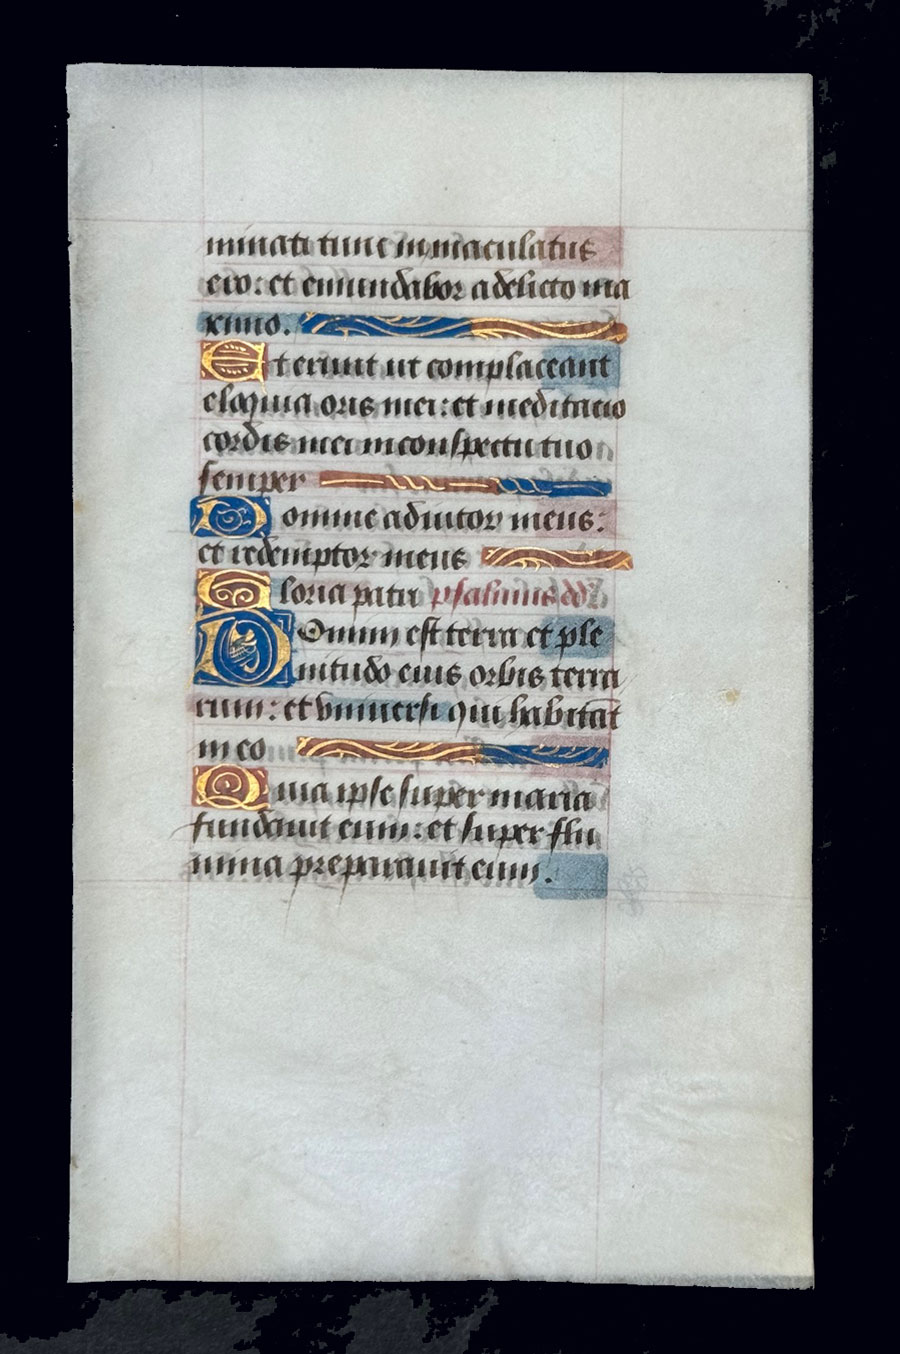 minati tunc inmaculatus
ero: et emundabor adelicto ma
ximo.
Et erunt ut complaceant
eloquia oris mei: et meditacio
cordis mei inconspectu tuo
semper
Domine adiutor meus:
et redemptor meus
Gloria patri psalmus dd
Domini est terra et ple
nitudo eius orbis terra
rum: et vniuersi qui habitāt
in eo
Quia ipse super maria
fundauit eum: et super flu
mina preparauit eum.